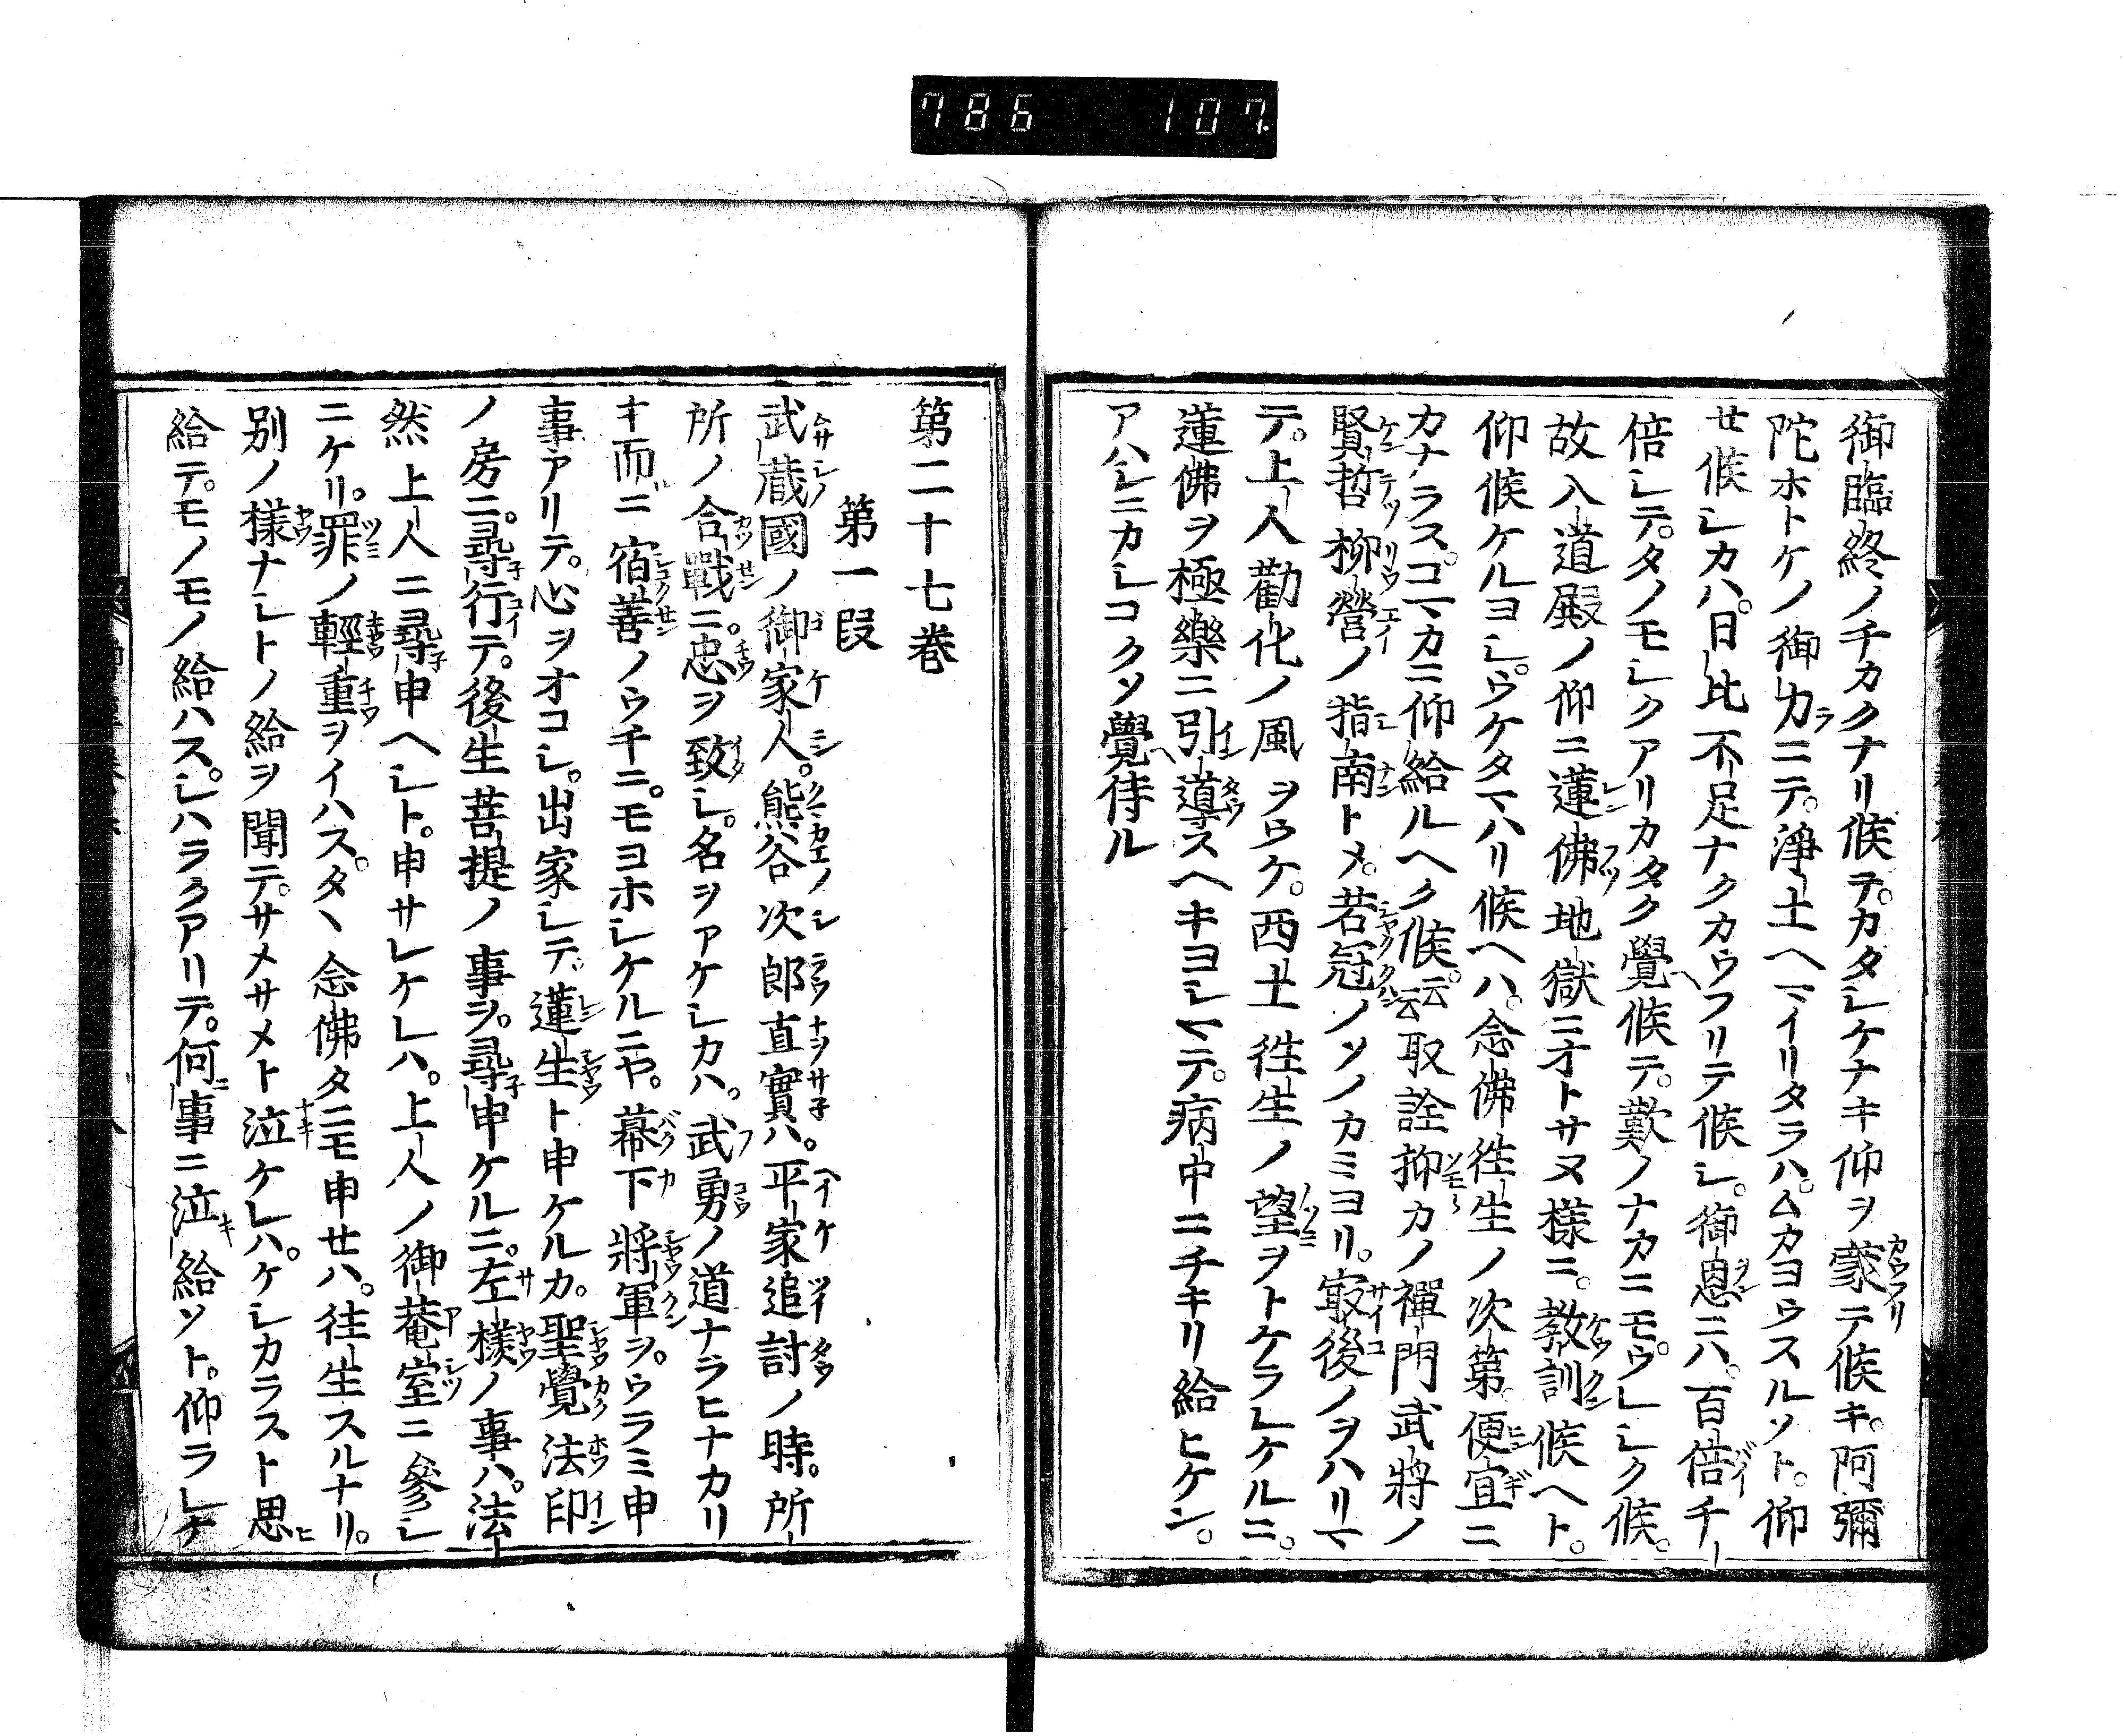 786 107
御臨終ノチカクナリ候テ。カタシケナキ仰ヲ蒙テ候キ。阿彌
陀ホトケノ御力ニテ。淨土ヘマイリタラハ。ムカヨウスルソト。仰
セ候シカハ。日比不足ナクカウフリテ候シ。御恩ニハ。百倍チ
倍シテ。タノモシクアリカタク覺候テ。歎ノナカニモ。ウレシク候。
故入道殿ノ仰ニ蓮佛地獄ニオトサヌ樣ニ。教訓候ヘト。
仰候ケルヨシ。ウケタマハリ候ヘハ。念佛往生ノ次第。便宜ニ
カナラス。コマカニ仰給ルヘク候。云云取詮抑カノ禪門武將ノ
賢哲柳營ノ指南トメ。若冠ノソノカミヨリ。最後ノヲハリマ
テ。上人勸化ノ風ヲウケ。西土往生ノ望ヲトケラレケルニ。
蓮佛ヲ極樂ニ引導スヘキヨシマテ。病中ニチキリ給ヒケン。
アハレニカシコクソ覺侍ル
第二十七卷
第一段
武藏國ノ御家人。熊谷次郎直實ハ。平家追討ノ時。所
所ノ合戰ニ。忠ヲ致シ。名ヲアケシカハ。武勇ノ道ナラヒナカリ
キ而ニ宿善ノウチニ。モヨホシケルニヤ。幕下將軍ヲ。ウラミ申
事アリテ。心ヲオコシ。出家シテ。蓮生ト申ケルカ。聖覺法印
ノ房ニ。尋行テ。後生菩提ノ事ヲ。尋申ケルニ。左樣ノ事ハ。法
然上人ニ尋申ヘシト。申サレケレハ。上人ノ御菴室ニ參シ
ニケリ。罪ノ輕重ヲイハス。タヽ念佛タニモ申セハ。往生スルナリ。
別ノ樣ナシトノ給ヲ聞テ。サメサメト泣ケレハ。ケシカラスト思
給テ。モノモノ給ハス。シハラクアリテ。何事ニ泣給ソト。仰ラレケ